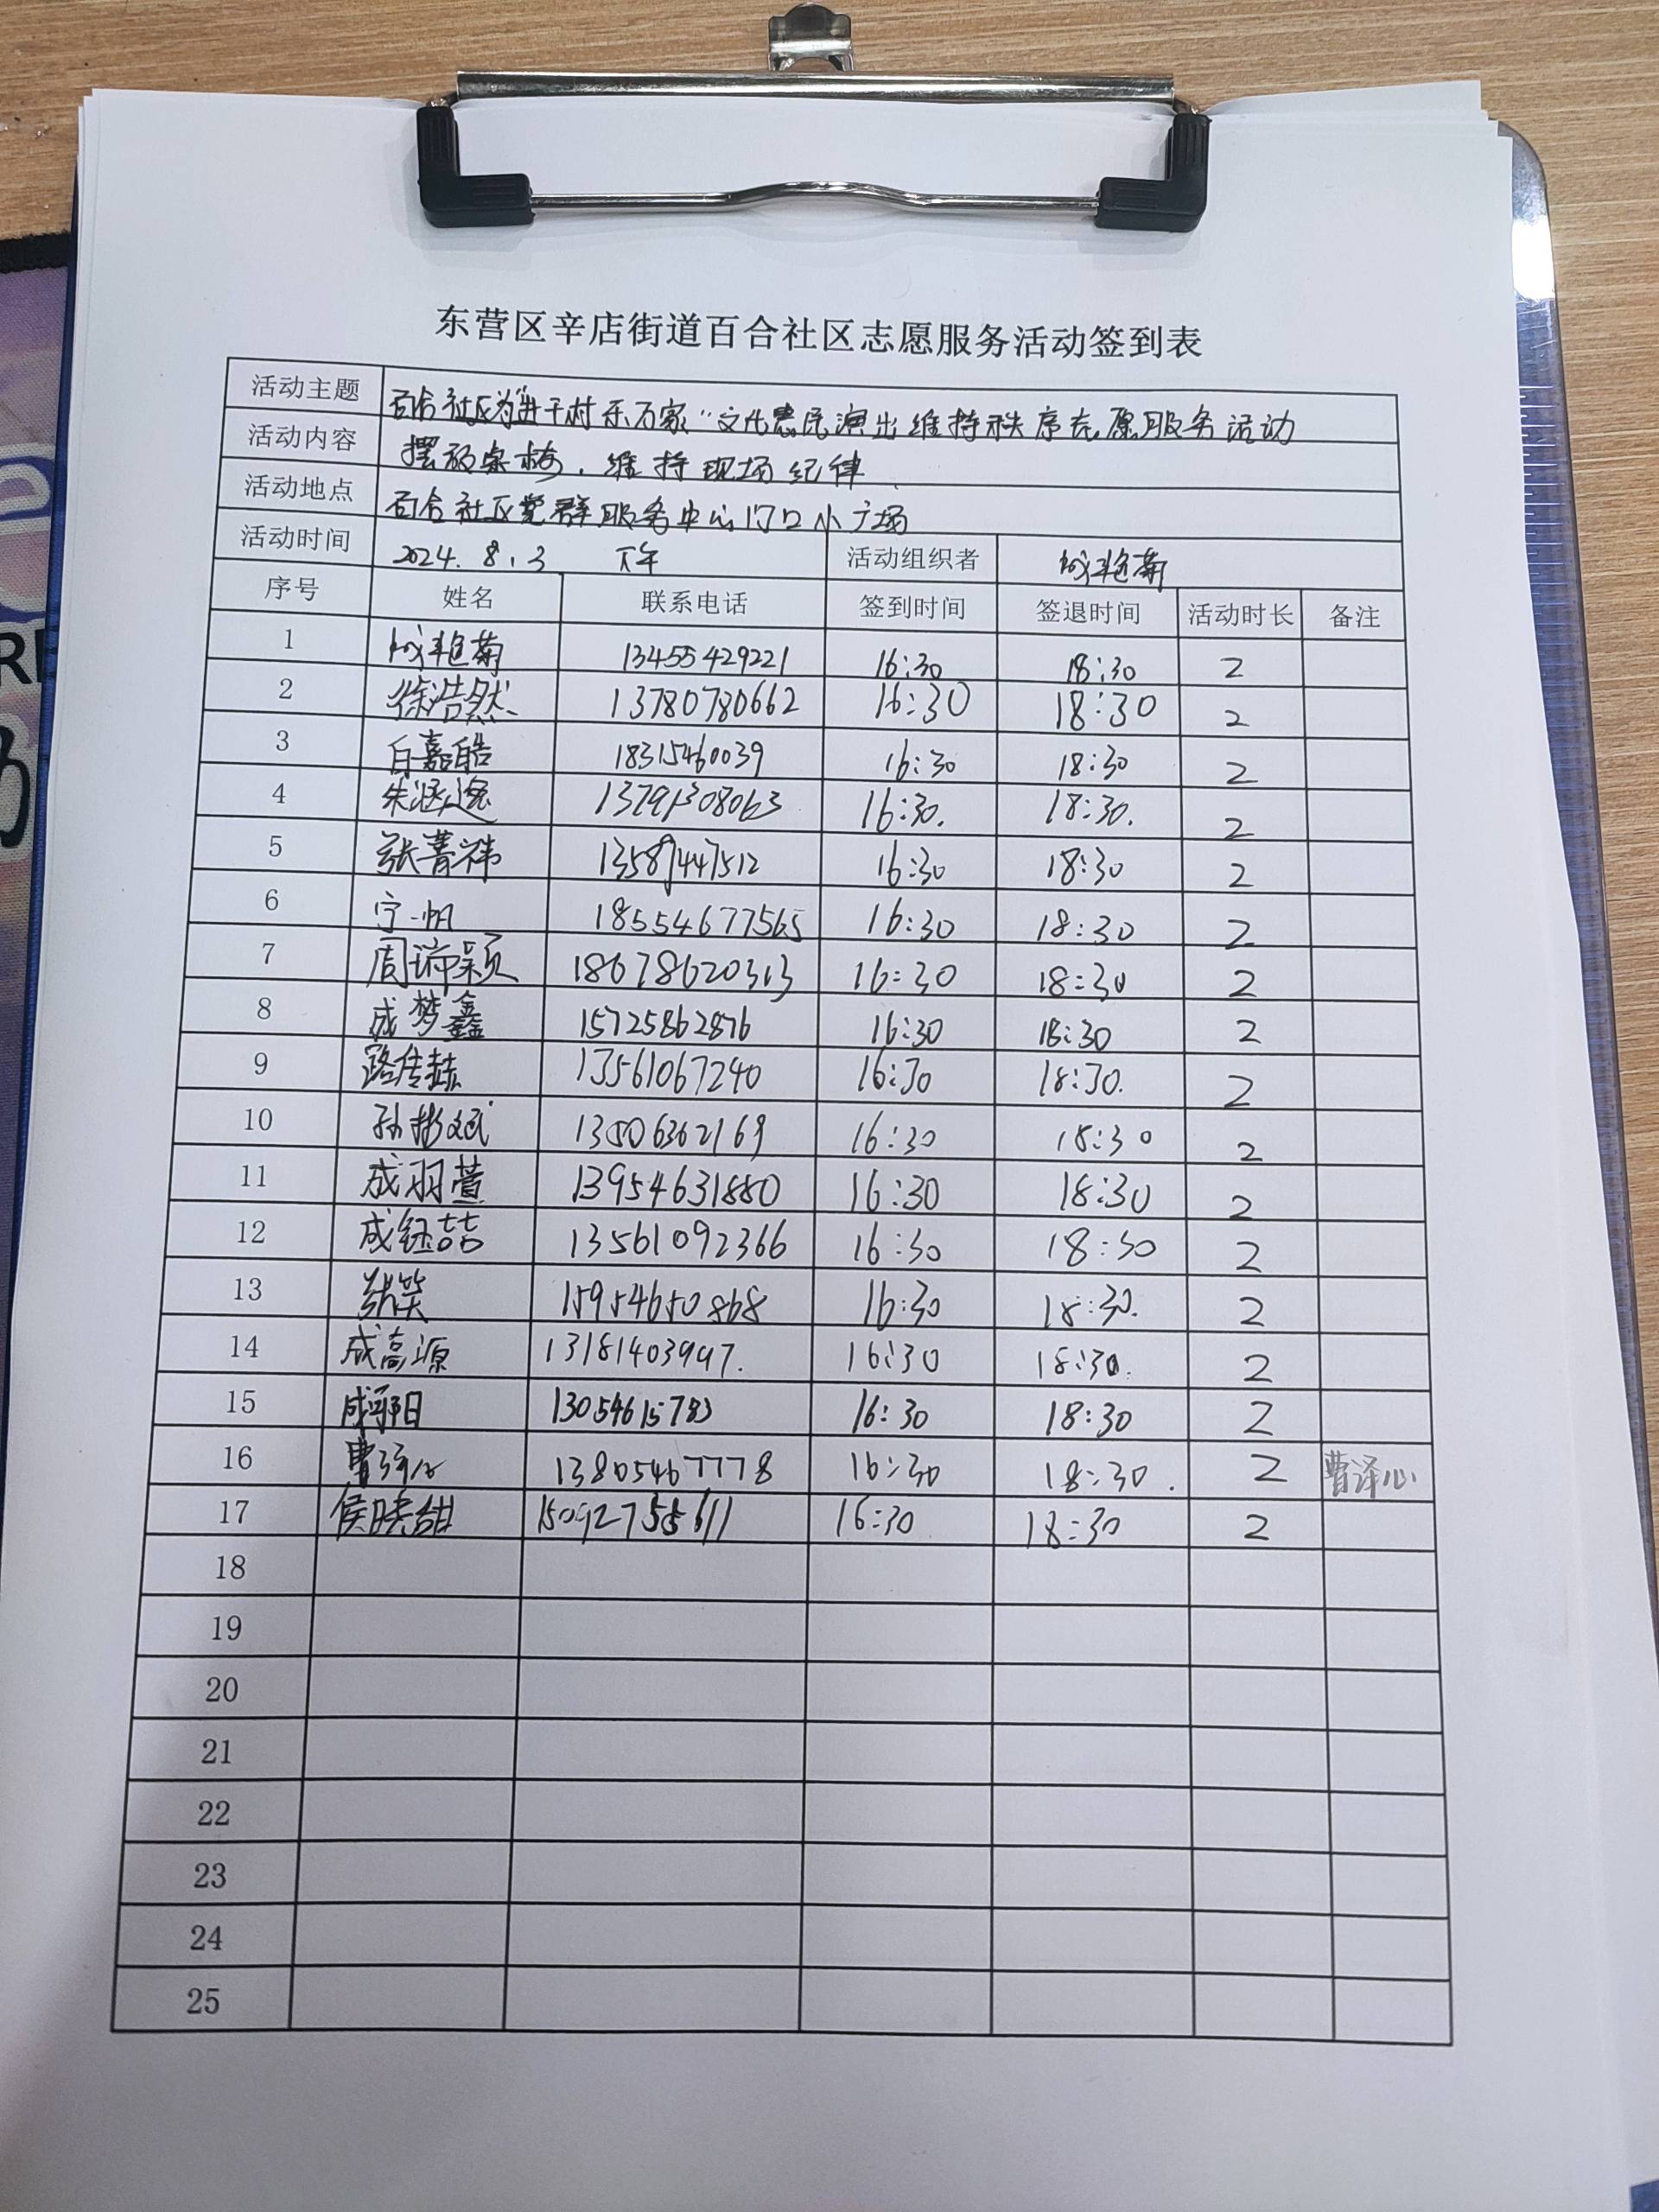 东营区辛店街道百合社区志愿服务活动签到表
活动主题 百合社区为"进千村乐万家"文化惠民演出维持秩序志愿服务活动
活动内容 摆放桌椅、维持现场纪律
活动地点 百合社区党群服务中心门口小广场
活动时间 2024.8.3 下午 活动组织者 成艳菊
序号 姓名 联系电话 签到时间 签退时间 活动时长 备注
1 成艳菊 13455429221 16:30 18:30 2
2 徐浩然 13780780662 16:30 18:30 2
3 白嘉皓 18315460039 16:30 18:30 2
4 朱涵逸 13791308063 16:30. 18:30. 2
5 张菁祎 13589447512 16:30 18:30 2
6 宁一帆 18554677565 16:30 18:30 2
7 周瑞颖 18678620313 16:30 18:30 2
8 成梦鑫 15725862876 16:30 18:30 2
9 路传赫 13561067240 16:30 18:30. 2
10 孙彬斌 13506362169 16:30 18:30 2
11 成羽萱 13954631880 16:30 18:30 2
12 成钰喆 13561092366 16:30 18:30 2
13 张笑 15954650868 16:30 18:30. 2
14 成高源 13181403997. 16:30 18:30. 2
15 13054615783 16:30 18:30 2
16 曹泽心 13805467778 16:30 18:30. 2 曹泽心
17 侯晓甜 15092755611 16:30 18:30 2
18
19
20
21
22
23
24
25